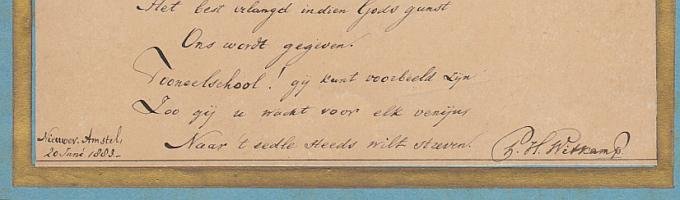 Het best erlangd indien Gods gunst
Ons wordt gegeven.
Tooneelschool! gij kunt voorbeeld zijn
Zoo gij u wacht voor elk venijn
Naar 't eedle steeds wilt streven.
Nieuwer. Amstel,
20 Juni 1883.-
P. H. Witkamp.